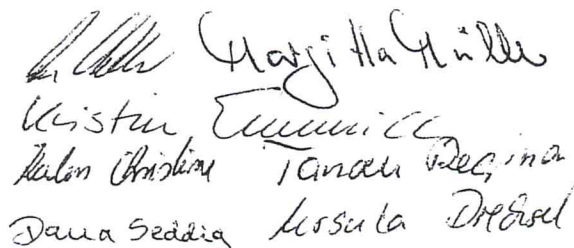 Margitta Müller
Kristin Emmrich
Christine Tanau Regina
Dana Seddig Ursula Drechsel